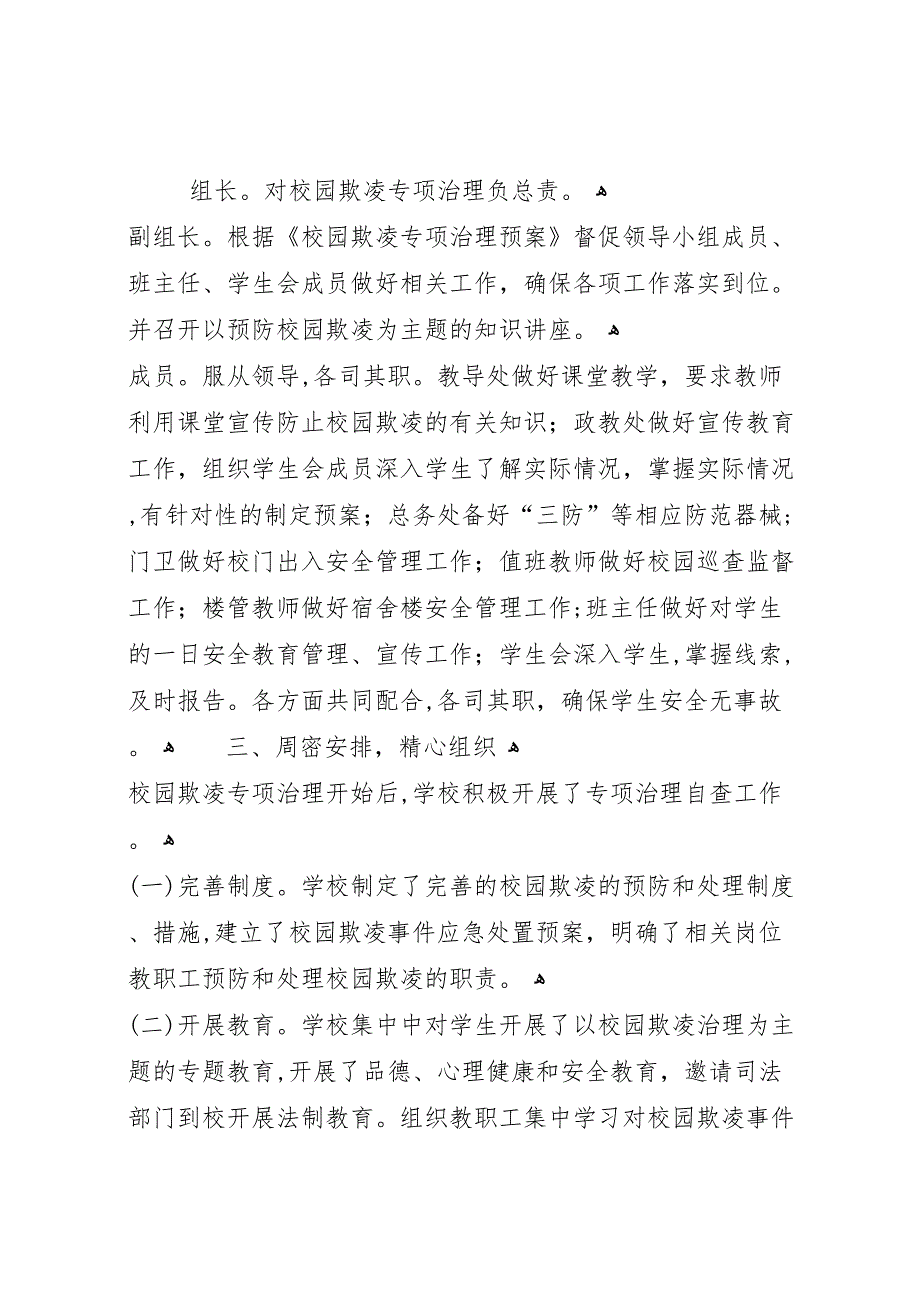 组长。对校园欺凌专项治理负总责。 ﻫ
副组长。根据《校园欺凌专项治理预案》督促领导小组成员、
班主任、学生会成员做好相关工作，确保各项工作落实到位。
并召开以预防校园欺凌为主题的知识讲座。 ﻫ
成员。服从领导,各司其职。教导处做好课堂教学，要求教师
利用课堂宣传防止校园欺凌的有关知识；政教处做好宣传教育
工作，组织学生会成员深入学生了解实际情况，掌握实际情况
,有针对性的制定预案；总务处备好“三防”等相应防范器械;
门卫做好校门出入安全管理工作；值班教师做好校园巡查监督
工作；楼管教师做好宿舍楼安全管理工作;班主任做好对学生
的一日安全教育管理、宣传工作；学生会深入学生,掌握线索,
及时报告。各方面共同配合,各司其职，确保学生安全无事故
。 ﻫ 三、周密安排，精心组织 ﻫ
校园欺凌专项治理开始后,学校积极开展了专项治理自查工作
。 ﻫ
(一)完善制度。学校制定了完善的校园欺凌的预防和处理制度
、措施,建立了校园欺凌事件应急处置预案，明确了相关岗位
教职工预防和处理校园欺凌的职责。 ﻫ
(二)开展教育。学校集中中对学生开展了以校园欺凌治理为主
题的专题教育,开展了品德、心理健康和安全教育，邀请司法
部门到校开展法制教育。组织教职工集中学习对校园欺凌事件